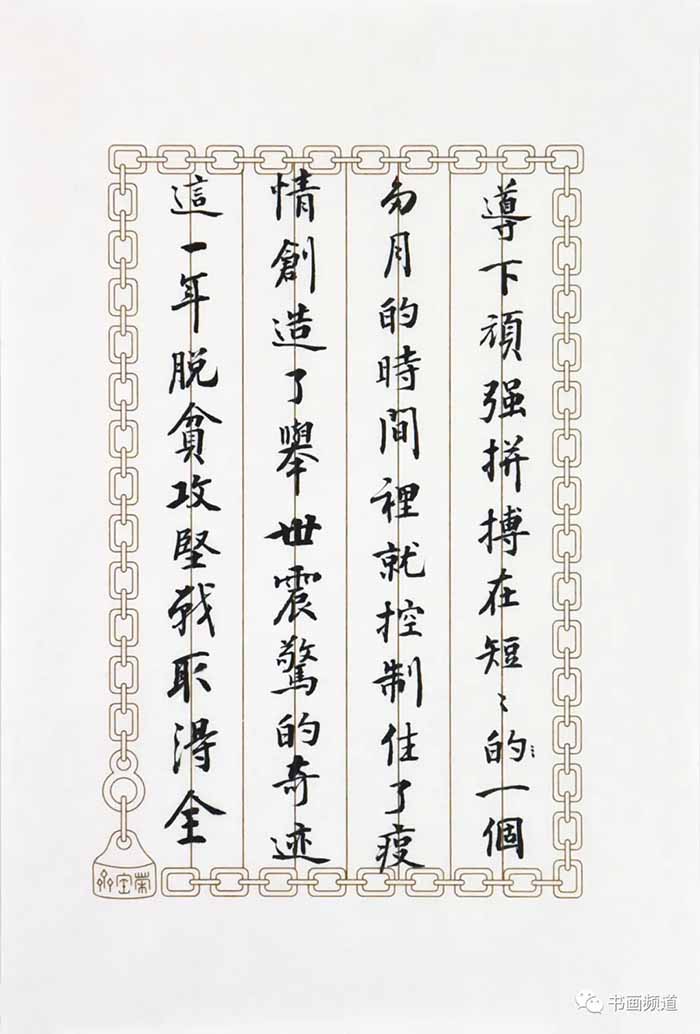 導下頑强拼搏在短〻的一個
多月的時間裡就控制住了疫
情創造了舉世震驚的奇迹
這一年脱貧攻堅戰取得全
榮宝齋
书画频道